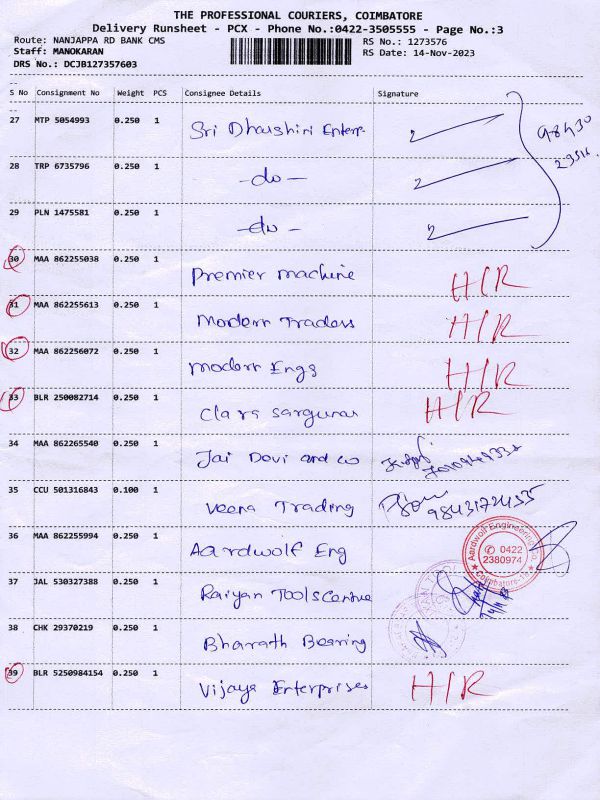 THE PROFESSIONAL COURIERS, COIMBATORE
Delivery Runsheet - PCX - Phone No.:0422-3505555 - Page No.:3
Route: NANJAPPA RD BANK CMS
Staff: MANOKARAN
DRS No.: DCJB127357603
RS No.: 1273576
RS Date: 14-Nov-2023
S No Consignment No Weight PCS Consignee Details Signature
27 MTP 5054993 0.250 1 Sri Dhaushini Enterp.
28 TRP 6735796 0.250 1 - do -
29 PLN 1475581 0.250 1 - do -
98430
30 MAA 862255038 0.250 1 Premier machine H/R
31 MAA 862255613 0.250 1 Modern Traders H/R
32 MAA 862256072 0.250 1 Modern Engg H/R
33 BLR 250082714 0.250 1 Clara sargunar H/R
34 MAA 862265540 0.250 1 Jai Devi and co
35 CCU 501316843 0.100 1 Veena Trading 9843172455
36 MAA 862255994 0.250 1 Aardwolf Eng
Aardwolf Engineering Co
0422
2380974
Coimbatore-18
37 JAL 530327388 0.250 1 Raiyan Tools Centre
38 CHK 29370219 0.250 1 Bharath Bearing
39 BLR 5250984154 0.250 1 Vijaya Enterprises H/R